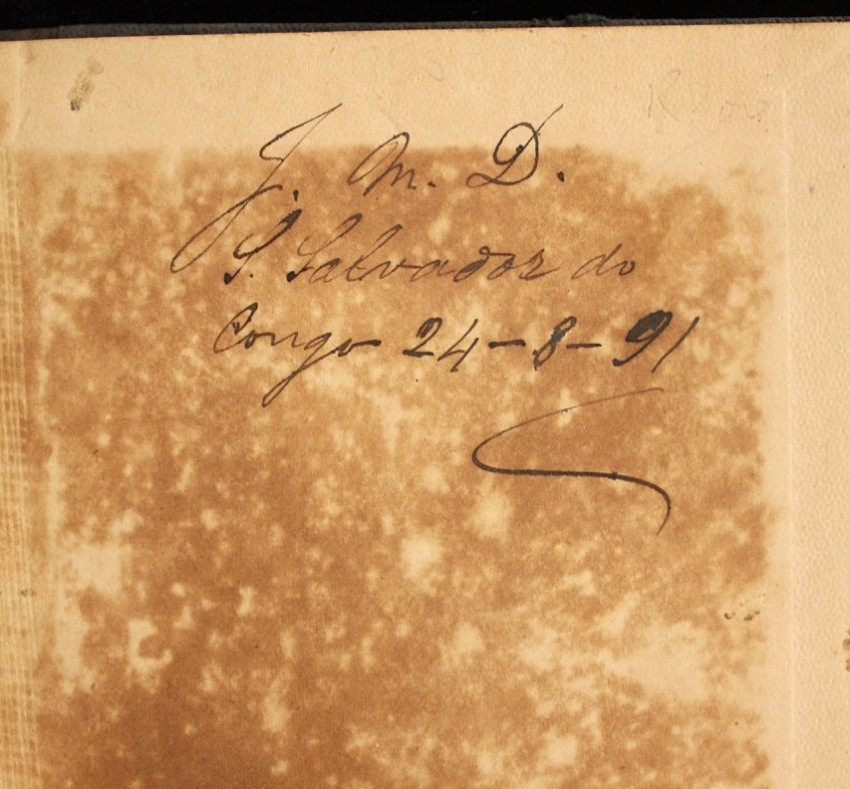 J. M. D.
S. Salvador do
Congo 24-8-91